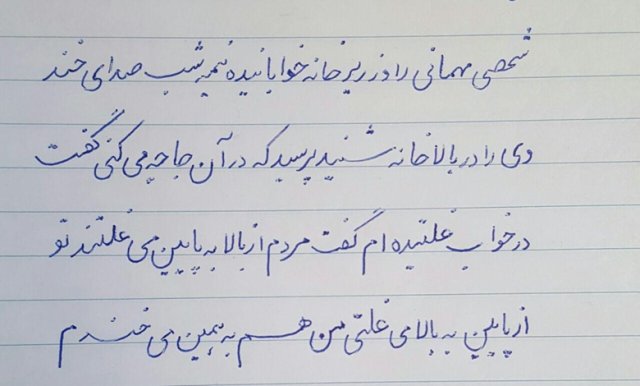 شخصی مهمانی را در زیر خانه خوابانیده نیمه شب صدای خند
وی را در بالا خانه شنید پرسید که در آن جا چه می کنی گفت
در خواب غلتیده ام گفت مردم از بالا به پایین می غلتند تو
از پایین به بالا می غلتی من هم به همین می خندم